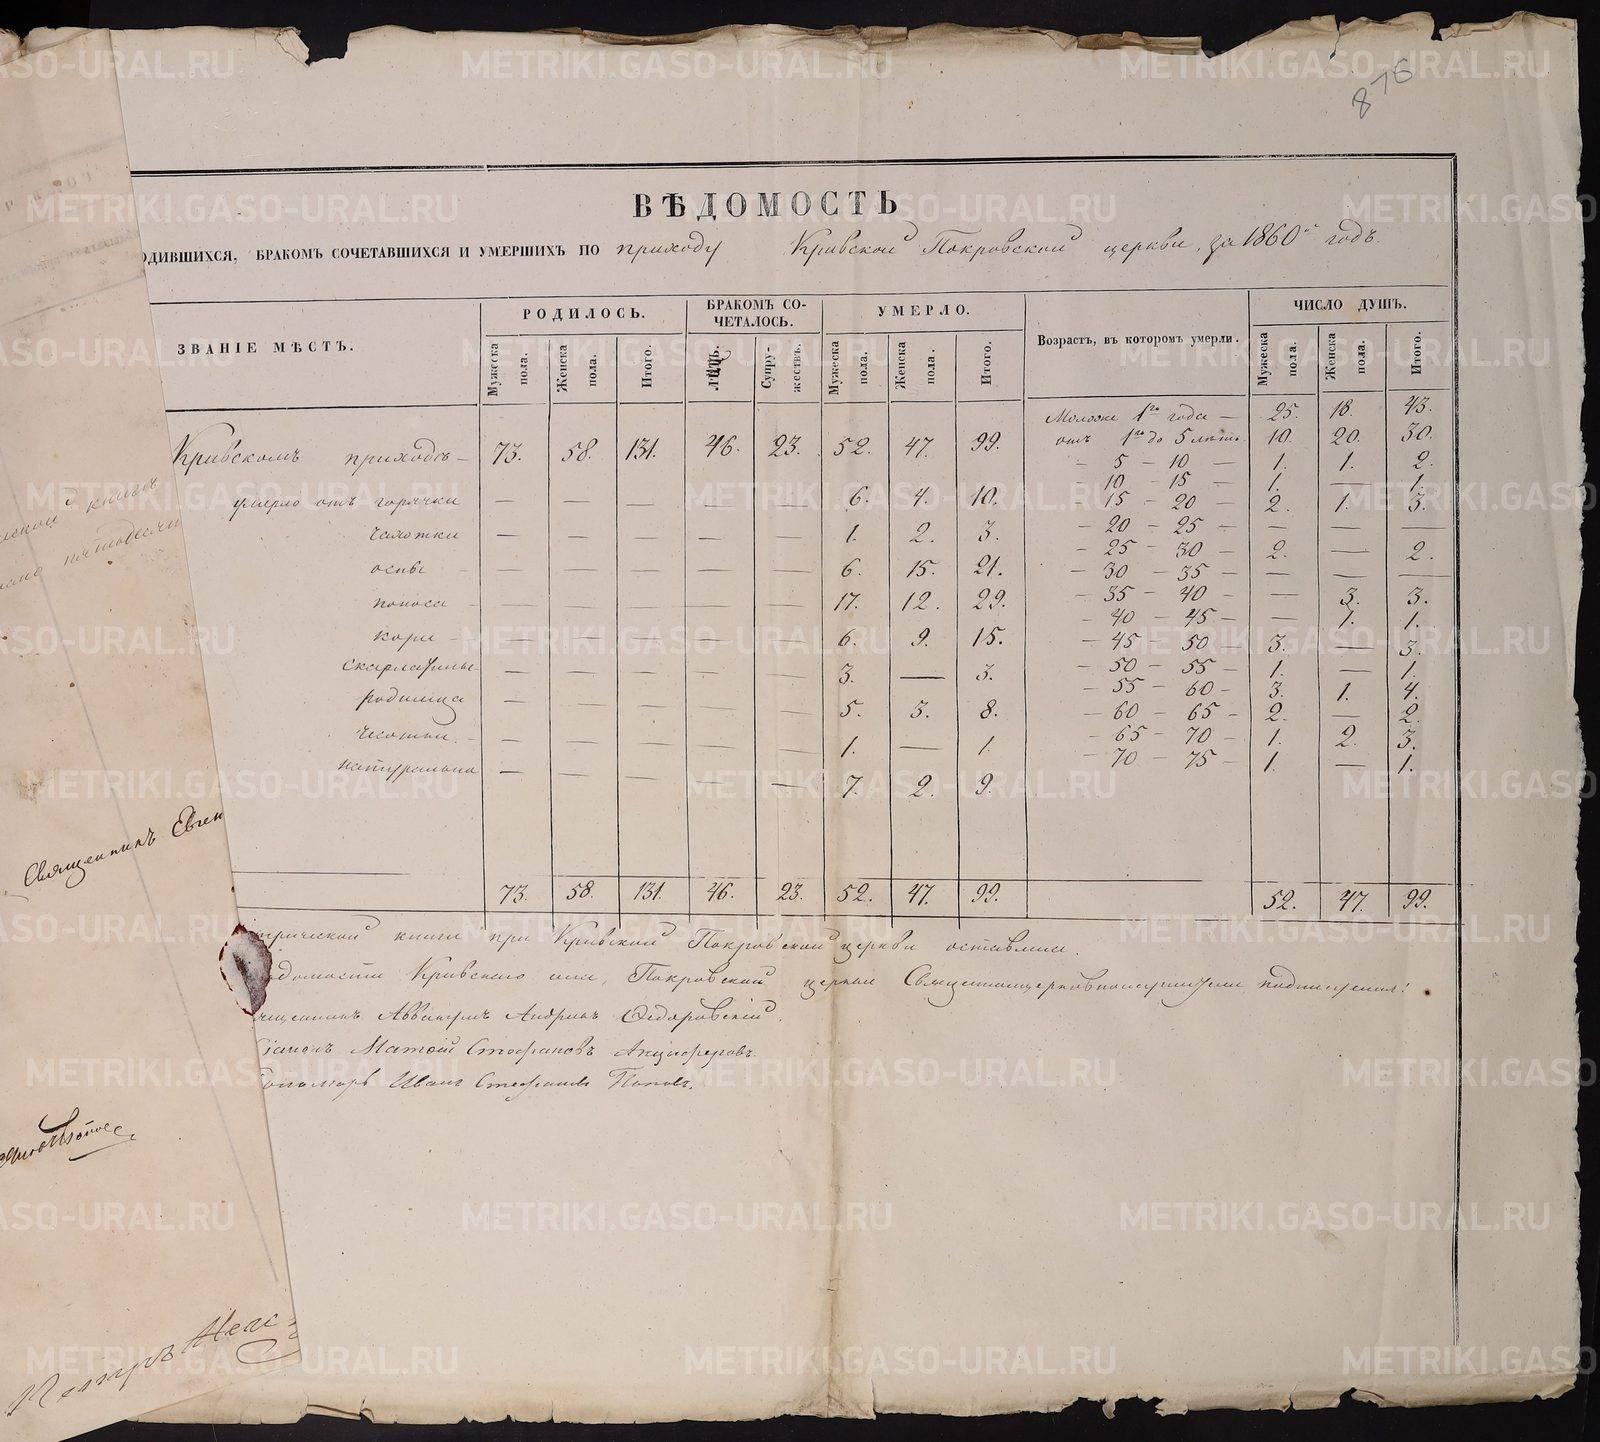 876
ВѢДОМОСТЬ
ОДИВШИХСЯ, БРАКОМЪ СОЧЕТАВШИХСЯ И УМЕРШИХЪ ПО приходу Кривской Покровской церкви, за 1860й годъ.
ЗВАНІЕ МѢСТЪ. РОДИЛОСЬ. БРАКОМЪ СО-ЧЕТАЛОСЬ. УМЕРЛО. Возрастъ, въ которомъ умерли. ЧИСЛО ДУШЪ.
Мужеска пола. Женска пола. Итого. ЛИЦЪ. Супру-жествъ. Мужеска пола. Женска пола. Итого. Мужеска пола. Женска пола. Итого.
Кривскомъ приходѣ 73. 58. 131. 46. 23. 52. 47. 99.
умерло отъ горячки — — — — — 6. 4. 10.
чахотки — — — — — 1. 2. 3.
оспы — — — — — 6. 15. 21.
поноса — — — — — 17. 12. 29.
кори — — — — — 6. 9. 15.
скарлатины — — — — — 3. — 3.
родимца — — — — — 5. 3. 8.
чесотки — — — — — 1. — 1.
натурально — — — — — 7. 2. 9.
Моложе 1го года — 25. 18. 43.
отъ 1го до 5 лѣтъ 10. 20. 30.
— 5 — 10 — 1. 1. 2.
— 10 — 15 — 1. — 1.
15 — 20 — 2. 1. 3.
— 20 — 25 — — — —
— 25 — 30 — 2. — 2.
— 30 — 35 — — — —
— 35 — 40 — — 3. 3.
— 40 — 45 — — 1. 1.
— 45 — 50 — 3. — 3.
— 50 — 55 — 1. — 1.
— 55 — 60 — 3. 1. 4.
— 60 — 65 — 2. — 2.
— 65 — 70 — 1. 2. 3.
— 70 — 75 — 1. — 1.
73. 58. 131. 46. 23. 52. 47. 99. 52. 47. 99.
трической книги при Кривской Покровской церкви оставлена.
домости Кривскаго села, Покровской церкви Священноцерковнослужители подписуемся:
щенникъ Аввакумъ Андреевъ Федоровскій.
Діаконъ Матѳей Стефановъ Анциферовъ.
Пономарь Иванъ Стефановъ Поповъ.
книгѣ
пятьдесят
Священникъ Евген
Петръ
METRIKI.GASO-URAL.RU